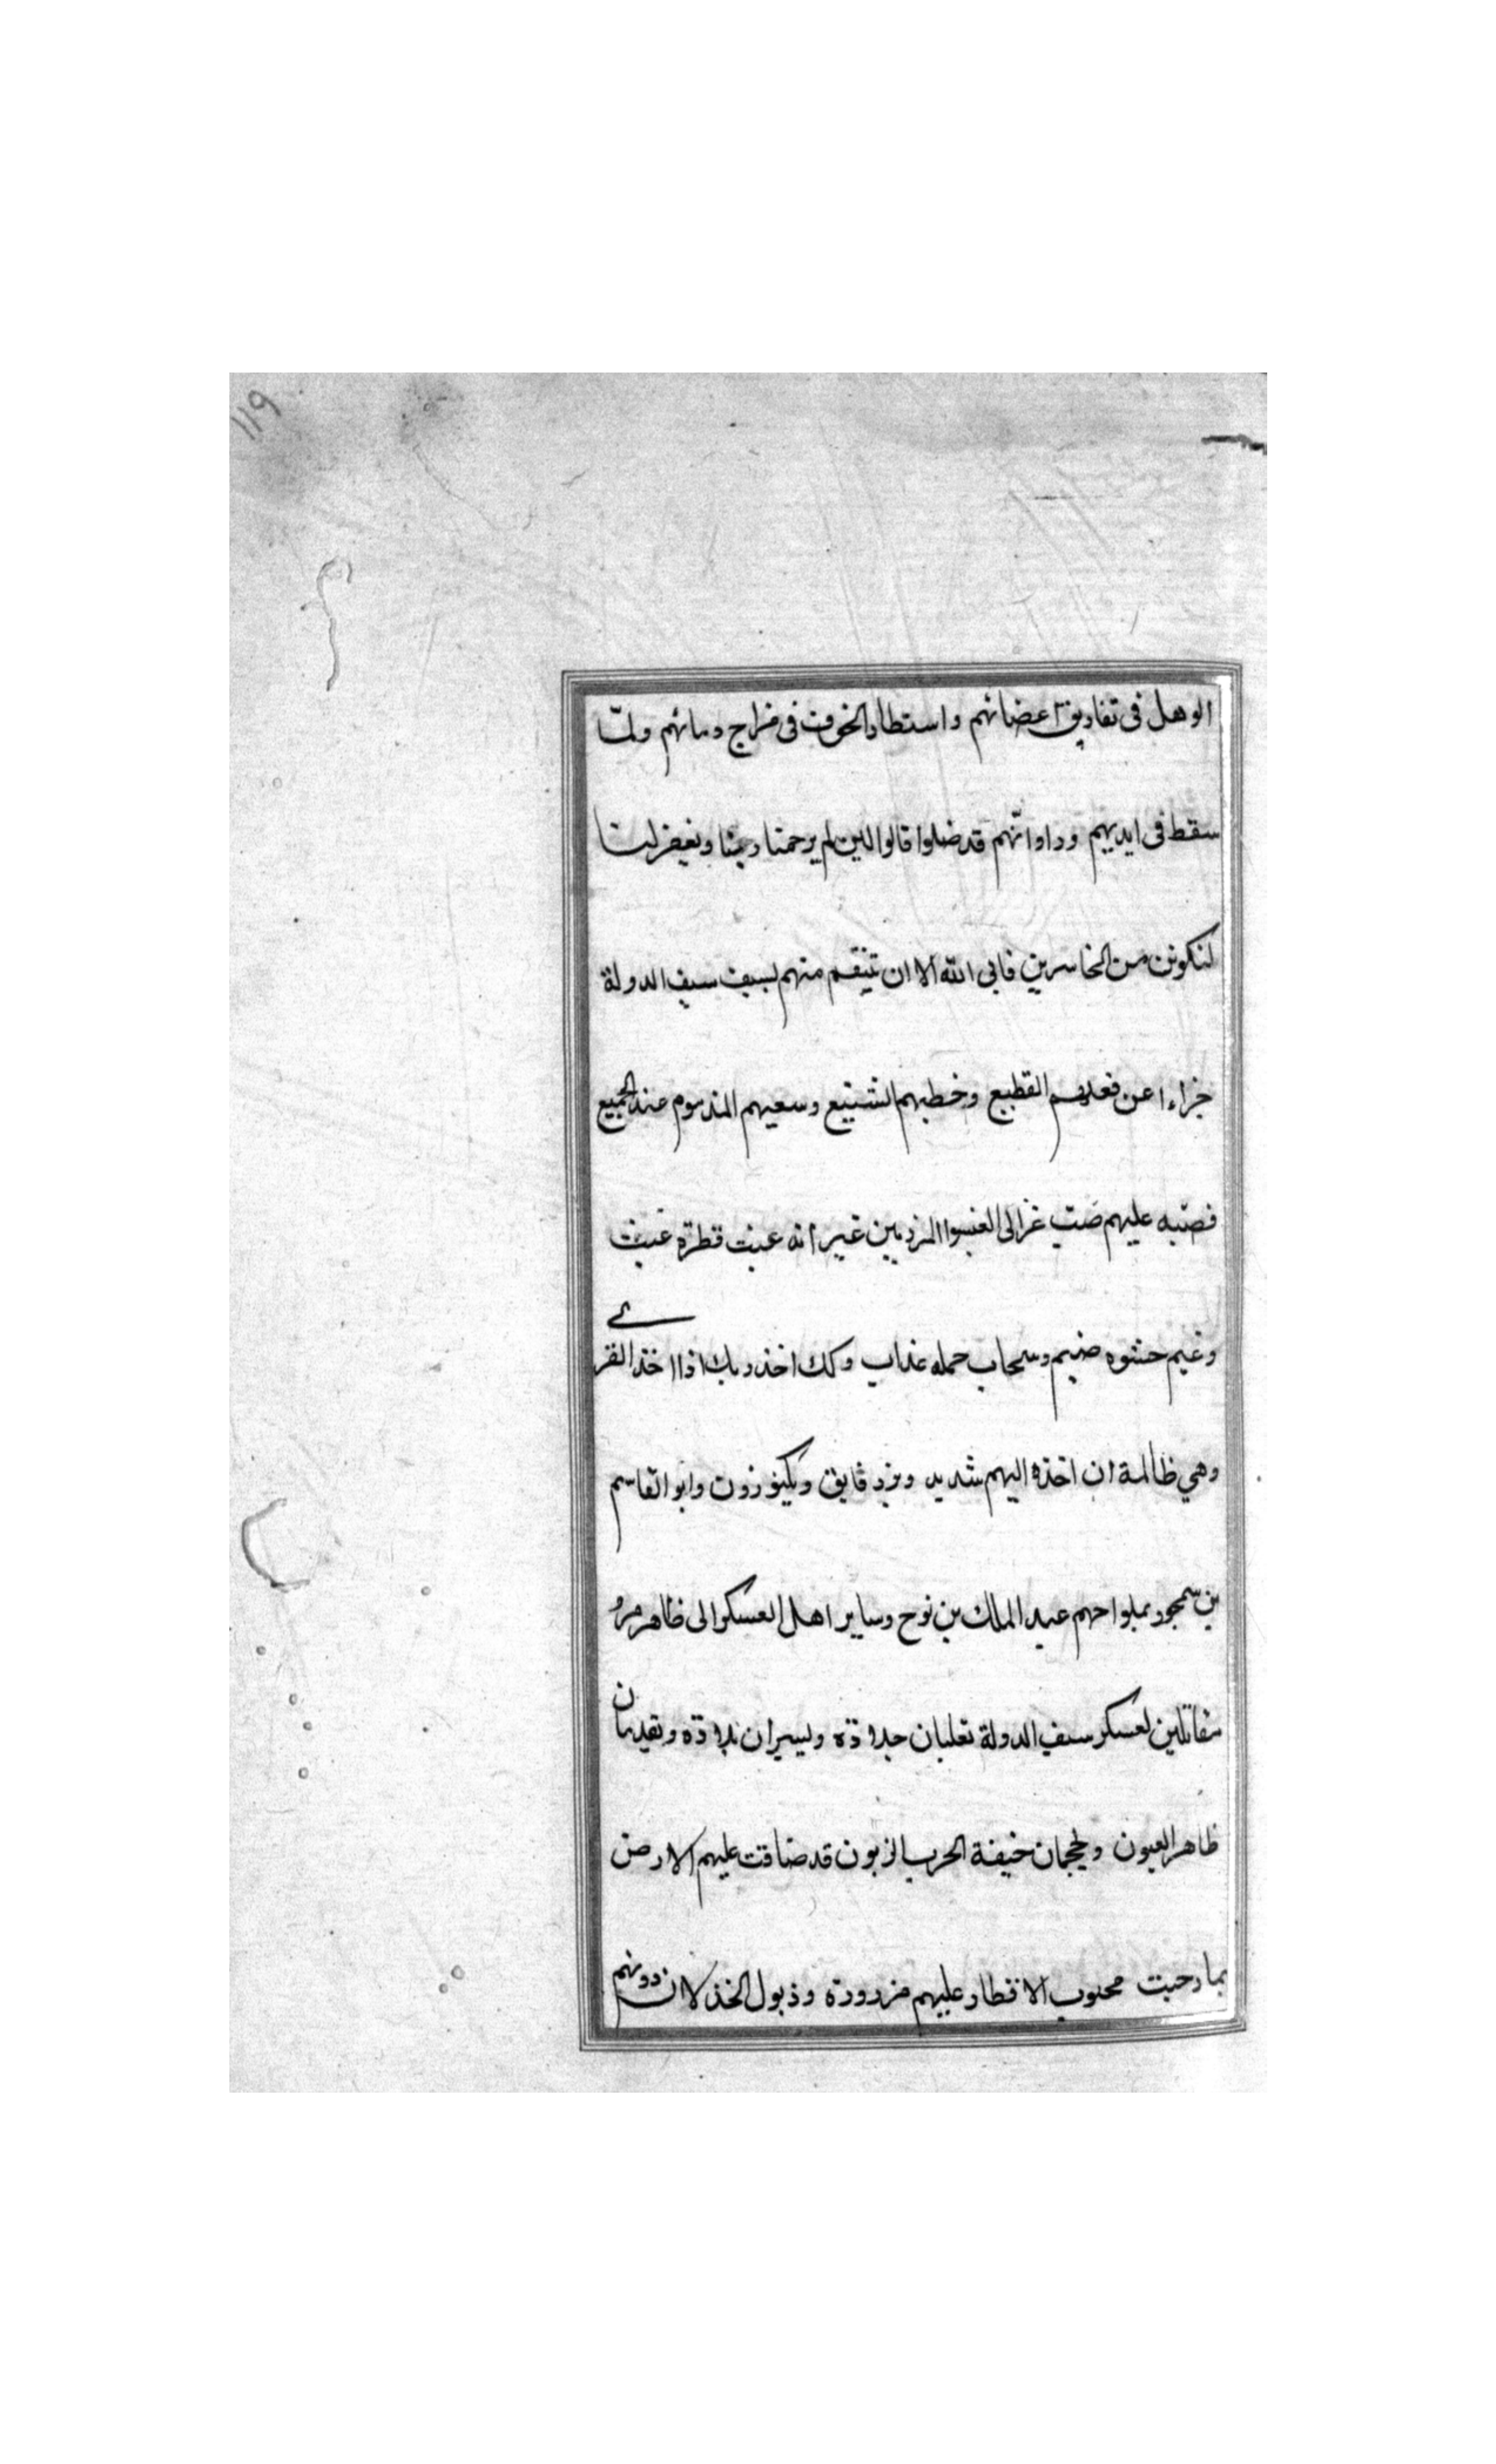 ١١٩
الوهل فى تفاريق اعضائهم واستطار الخوف فى مزاج دمائهم ولمّا
سقط فى ايديهم وراوا انّهم قد ضلوا قالوا لئن لم يرحمنا ربنا ويغفر لنا
لنكونن من الخاسرين فابى الله الا ان ينتقم منهم بسيف سيف الدولة
جزاءا عن فعلهم القطيع وخطبهم الشنيع وسعيهم المذموم عند الجميع
فصبّه عليهم صبّ عزالى المرذمين غير انه غيث قطره عيث
وغيم حشوه ضيم وسحاب حمله عذاب وكك اخذ ربك اذا اخذ القرى
وهي ظالمة ان اخذه اليم شديد وبرز فايق وبكتوزون وابو القاسم
بن سمجور عبد الملك بن نوح وساير اهل العسكر الى ظاهر مرو
مقاتلين لعسكر سيف الدولة ويسيران
ظاهر العيون خيفة الحرب الزبون قد ضاقت عليهم الارض
بما رحبت الاقطار عليهم مزرورة وذيول الخذلان دونهم